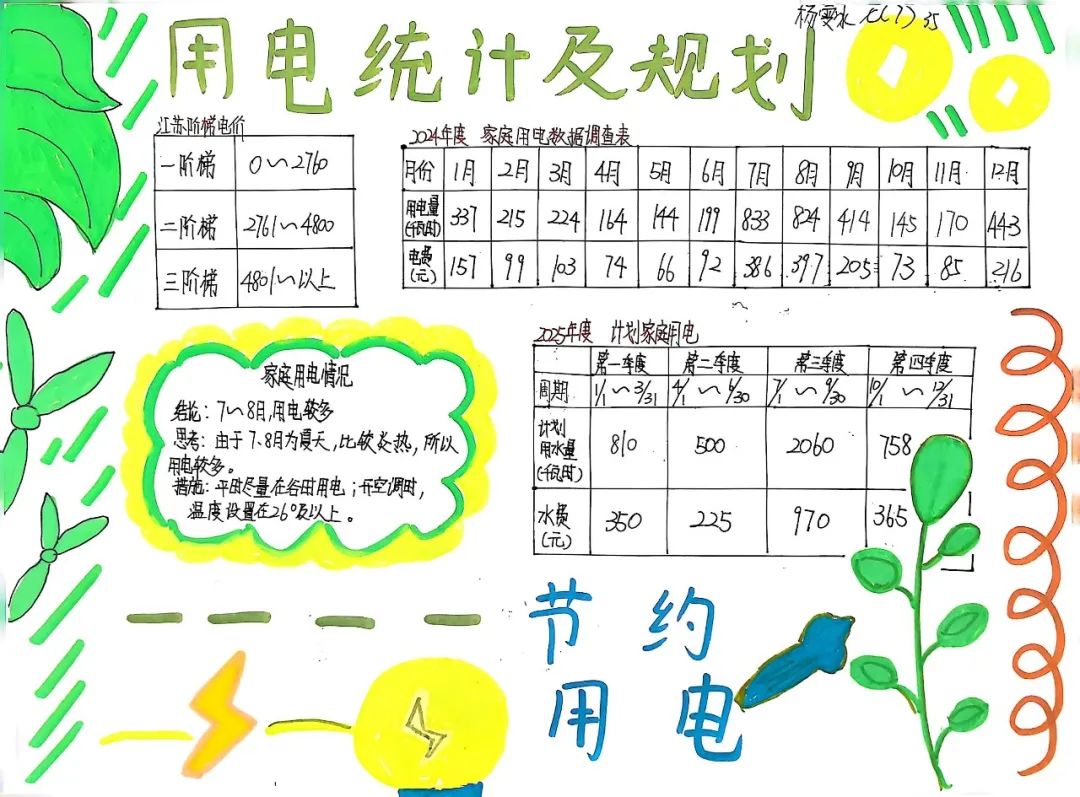 杨雯水 七(7) 35
用电统计及规划
江苏阶梯电价
一阶梯 0～2760
二阶梯 2761～4800
三阶梯 4801～以上
2024年度 家庭用电数据调查表
月份 1月 2月 3月 4月 5月 6月 7月 8月 9月 10月 11月 12月
用电量(千瓦时) 337 215 224 164 144 199 833 824 414 145 170 443
电费(元) 157 99 103 74 66 92 386 397 205 73 85 216
家庭用电情况
结论：7～8月,用电较多
思考：由于7、8月为夏天,比较炎热,所以
用电较多。
措施：平时尽量在谷时用电；开空调时,
温度设置在26°及以上。
2025年度 计划家庭用电
第一季度 第二季度 第三季度 第四季度
周期 1/1～3/31 4/1～6/30 7/1～9/30 10/1～12/31
计划用水量(千瓦时) 810 500 2060 758
水费(元) 350 225 970 365
节约
用电